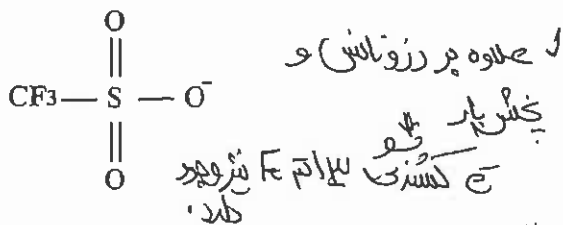 O
CF3—S—O⁻
O
علاوه بر رزونانس و
پخش بار
e کشندگی اتم F نیز وجود
دارد.